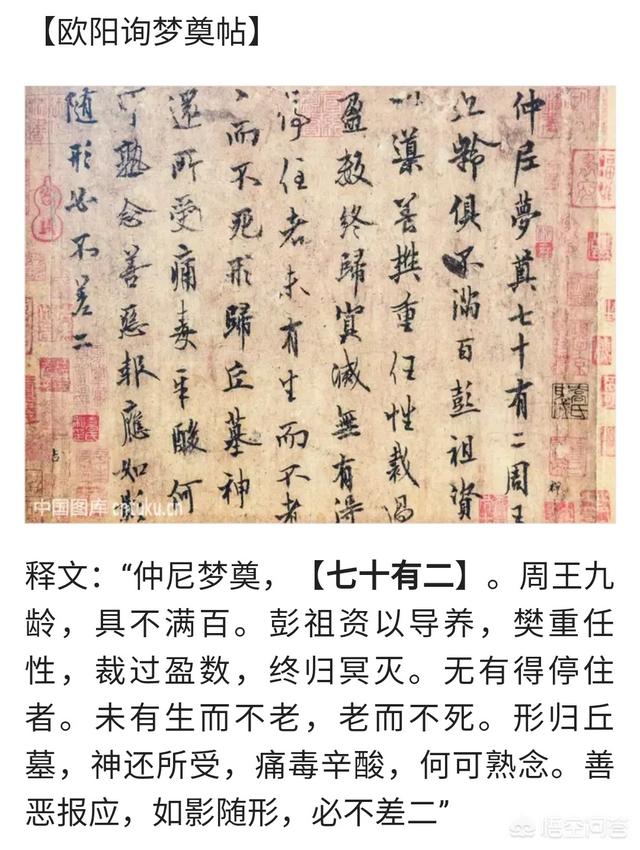 【欧阳询梦奠帖】
仲尼夢奠七十有二周王
九齡俱不滿百彭祖資
導養樊重任性裁過
盈數終歸冥滅無有得
停住者未有生而不老
而不死形歸丘墓神
還所受痛毒辛酸何
可熟念善惡報應如影
随形必不差二
中国图库 cntuku.cn
释文：“仲尼梦奠，【七十有二】。周王九
龄，具不满百。彭祖资以导养，樊重任
性，裁过盈数，终归冥灭。无有得停住
者。未有生而不老，老而不死。形归丘
墓，神还所受，痛毒辛酸，何可熟念。善
恶报应，如影随形，必不差二”
悟空问答